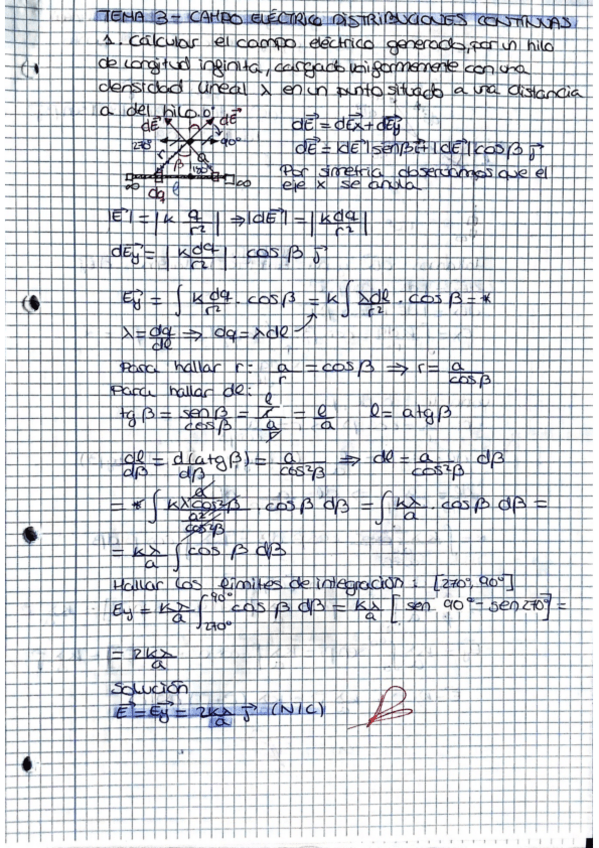 TEMA 3 - CAMPO ELÉCTRICO DISTRIBUCIONES CONTINUAS
1. Calcular el campo eléctrico generado, por un hilo
de longitud infinita, cargado uniformemente con una
densidad lineal λ en un punto situado a una distancia
a del hilo.
dE⃗ dE⃗
270° 90°
β a
∞ ∞
dq l
dE⃗ = dE⃗x + dE⃗y
dE⃗ = |dE⃗| senβ i⃗ + |dE⃗| cosβ j⃗
Por simetría observamos que el
eje x se anula.
|E⃗| = |k q/r²| ⇒ |dE⃗| = |k dq/r²|
dE⃗y = |k dq/r²| · cos β j⃗
E⃗y = ∫ k dq/r² · cosβ = k ∫ λdl/r² · cos β = *
λ = dq/dl ⇒ dq = λdl
Para hallar r: a/r = cosβ ⇒ r = a/cosβ
Para hallar dl:
tg β = senβ/cosβ = (l/r)/(a/r) = l/a l = a tgβ
dl/dβ = d(a tgβ)/dβ = a/cos²β ⇒ dl = a/cos²β dβ
= * ∫ (kλ a/cos²β)/(a²/cos²β) · cos β dβ = ∫ kλ/a · cos β dβ =
= kλ/a ∫ cos β dβ
Hallar los límites de integración: [270°, 90°]
Ey = kλ/a ∫₂₇₀°^90° cos β dβ = kλ/a [sen 90° - sen 270°] =
= 2kλ/a
Solución
E⃗ = E⃗y = 2kλ/a j⃗ (N/C)